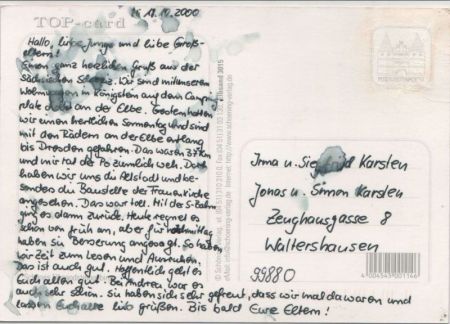 K 17.10.2000
TOP-card
Hallo, liebe Jungs und liebe Groß-
eltern!
Einen ganz herzlichen Gruß aus der
Sächsischen Schweiz. Wir sind mit unserem
Wohnwagen in Königstein auf dem Camping-
platz direkt an der Elbe. Gestern hatten
wir einen herrlichen Sonnentag und sind
mit den Rädern an der Elbe entlang
bis Dresden gefahren. Das waren 37 km
und mir tat der Po ziemlich weh. Dort
haben wir uns die Altstadt und be-
sonders die Baustelle der Frauenkirche
angesehen. Das war toll. Mit der S-Bahn
ging es dann zurück. Heute regnet es
schon von früh an, aber für nachmittag
haben sie Besserung angesagt. So haben
wir Zeit zum Lesen und Ausruhen.
Das ist auch gut. Hoffentlich geht es
Euch allen gut. Bei Andrea war es
auch sehr schön. Sie haben sich sehr gefreut, dass wir mal da waren und
lassen Euch alle lieb grüßen. Bis bald Eure Eltern!
Irma u. Siegfried Karsten
Jonas u. Simon Karsten
Zeughausgasse 8
Waltershausen
99880
4 045493 001146